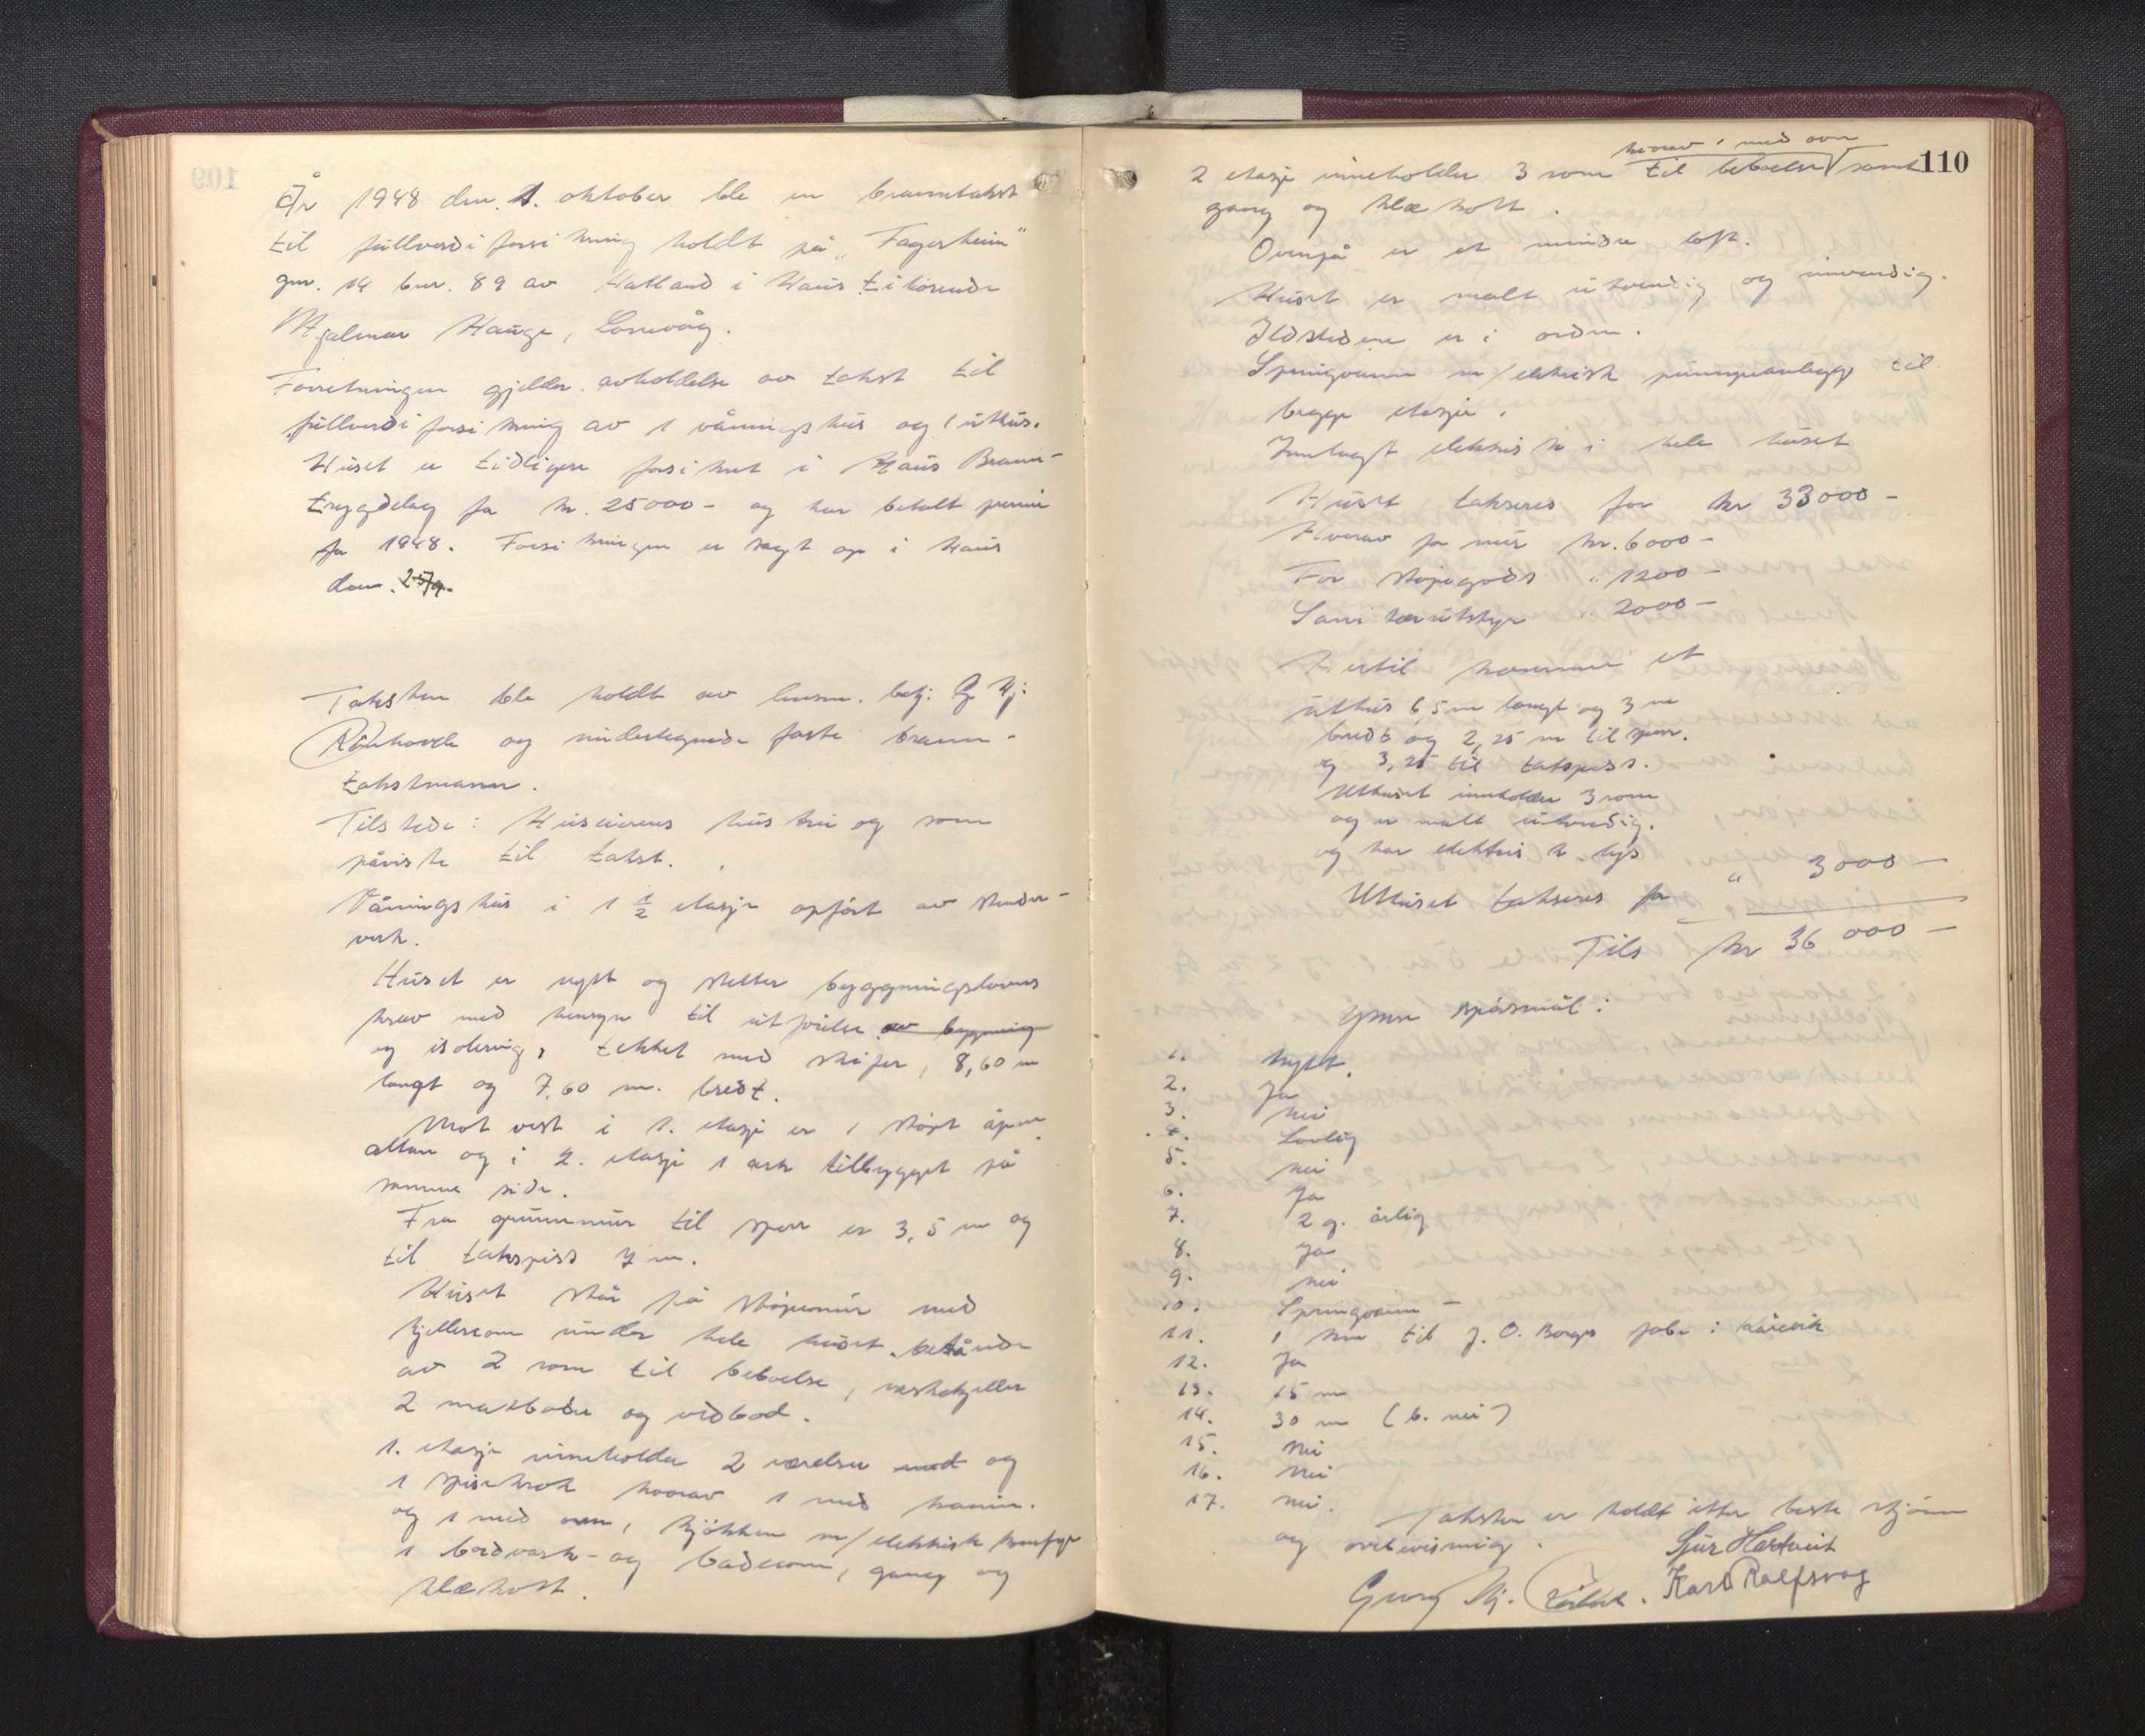 År 1948 den 1. oktober ble en branntakst
til fullverdiforsikring holdt på "Fagerheim"
gnr. 14 bnr. 89 av Hatland i Haus tilhørende
Hjalmar Hauge, Lonevåg.
Forretningen gjelder avholdelse av takst til
fullverdiforsikring av 1 våningshus og 1 uthus.
Huset er tidligere forsikret i Haus Brann-
trygdelag for kr. 25000- og har betalt premie
for 1948. Forsikringen er sagt op i Haus
den 25/9.
Taksten ble holdt av lensm. betj. G. Hj.
og undertegnede faste brann-
takstmann.
Tilstede: Huseierens hustru og som
påviste til takst.
Våningshus i 1 1/2 etasje opført av stender-
verk.
Huset er nytt og stetter byggningslovens
krav med hensyn til utførelse av byggning
og isolering, tekket med skifer, 8,60 m
langt og 7,60 m. bredt.
Mot vest i 1. etasje er 1 støpt åpen
altan og i 2. etasje 1 ark tilbygget på
samme side.
Fra grunnmur til sperr er 3,5 m og
til takspiss 7 m.
Huset står på støpemur med
kjellerrom under hele huset bestående
av 2 rom til beboelse, vaskekjeller
2 matboder og vedbod.
1. etasje inneholder 2 værelser med og
1 spisekrok hvorav 1 med kamin.
og 1 med ovn, kjøkken m/elektrisk komfyr
1 bordvask- og baderom, gang og
klækott.
110
hvorav 1 med ovn
2 etasje inneholder 3 rom til beboelse samt
gang og klækott.
Ovenpå er et mindre loft.
Huset er malt utvendig og innvendig.
Ildstedene er i orden.
Springvann m/elektrisk pumpeanlegg til
begge etasjer.
Innlagt elektrisk i hele huset
Huset takseres for kr 33000-
Hvorav for mur kr. 6000-
For støpegods " 1200-
Sanitærutstyr " 2000-
Hertil kommer et
uthus 6,5 m langt og 3 m
bredt og 2,25 m til sperr.
og 3,25 til takspiss.
Uthuset inneholder 3 rom
og er malt utvendig.
og har elektrisk lys
Uthuset takseres for " 3000-
Tils kr 36 000-
spørsmål:
1. Nytt.
2. Ja
3. nei
4. Lovlig
5. nei
6. Ja
7. 2 g. årlig
8. Ja
9. nei
10. Springvann-
11. 1 km til J. O. Borges fabr i
12. Ja
13. 15 m
14. 30 m (b. nei)
15. Nei
16. Nei
17. nei.
Taksten er holdt etter beste skjønn
og overbevisning.
Sjur Hartveit
Georg Hj. Karl Rolfsvåg